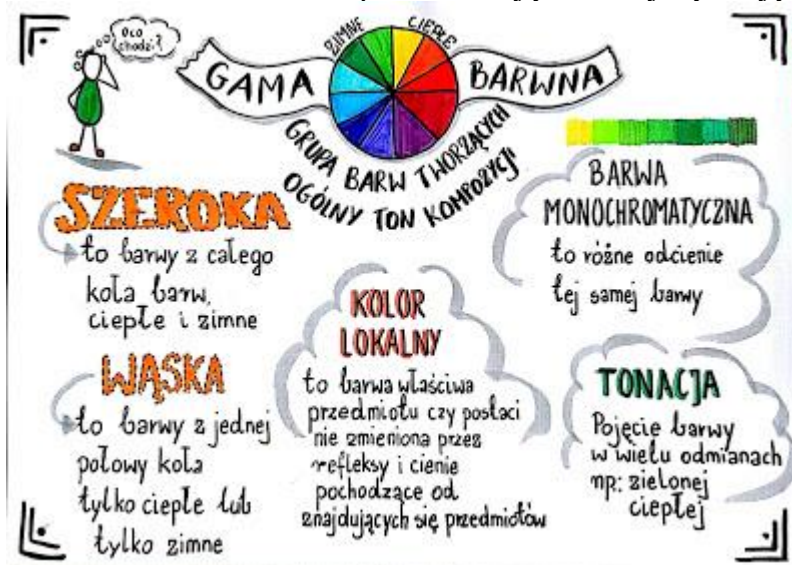 O co
chodzi?
ZIMNE CIEPŁE
GAMA BARWNA
GRUPA BARW TWORZĄCYCH
OGÓLNY TON KOMPOZYCJI
SZEROKA
to barwy z całego
koła barw,
ciepłe i zimne
WĄSKA
to barwy z jednej
połowy koła
tylko ciepłe lub
tylko zimne
KOLOR
LOKALNY
to barwa właściwa
przedmiotu czy postaci
nie zmieniona przez
refleksy i cienie
pochodzące od
znajdujących się przedmiotów
BARWA
MONOCHROMATYCZNA
to różne odcienie
tej samej barwy
TONACJA
Pojęcie barwy
w wielu odmianach
np: zielonej
ciepłej